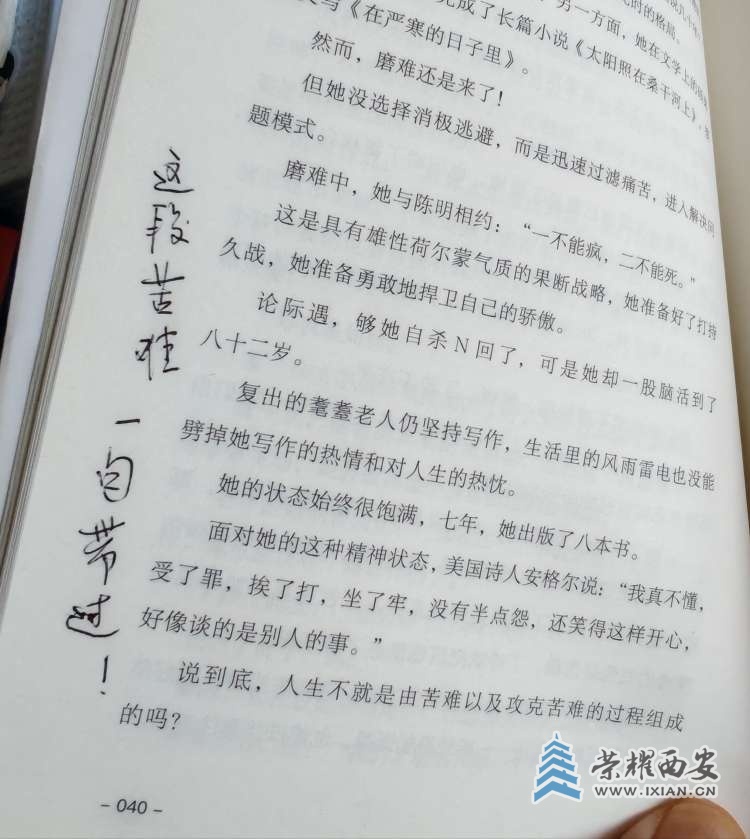 另一方面，她在文学上的
完成了长篇小说《太阳照在桑干河上》，
写《在严寒的日子里》。
然而，磨难还是来了！
但她没选择消极逃避，而是迅速过滤痛苦，进入解决问
题模式。
磨难中，她与陈明相约：“一不能疯，二不能死。”
这是具有雄性荷尔蒙气质的果断战略，她准备好了打持
久战，她准备勇敢地捍卫自己的骄傲。
论际遇，够她自杀N回了，可是她却一股脑活到了
八十二岁。
复出的耄耋老人仍坚持写作，生活里的风雨雷电也没能
劈掉她写作的热情和对人生的热忱。
她的状态始终很饱满，七年，她出版了八本书。
面对她的这种精神状态，美国诗人安格尔说：“我真不懂，
受了罪，挨了打，坐了牢，没有半点怨，还笑得这样开心，
好像谈的是别人的事。”
说到底，人生不就是由苦难以及攻克苦难的过程组成
的吗？
- 040 -
这段苦难
一句带过！
荣耀西安
WWW.IXIAN.CN